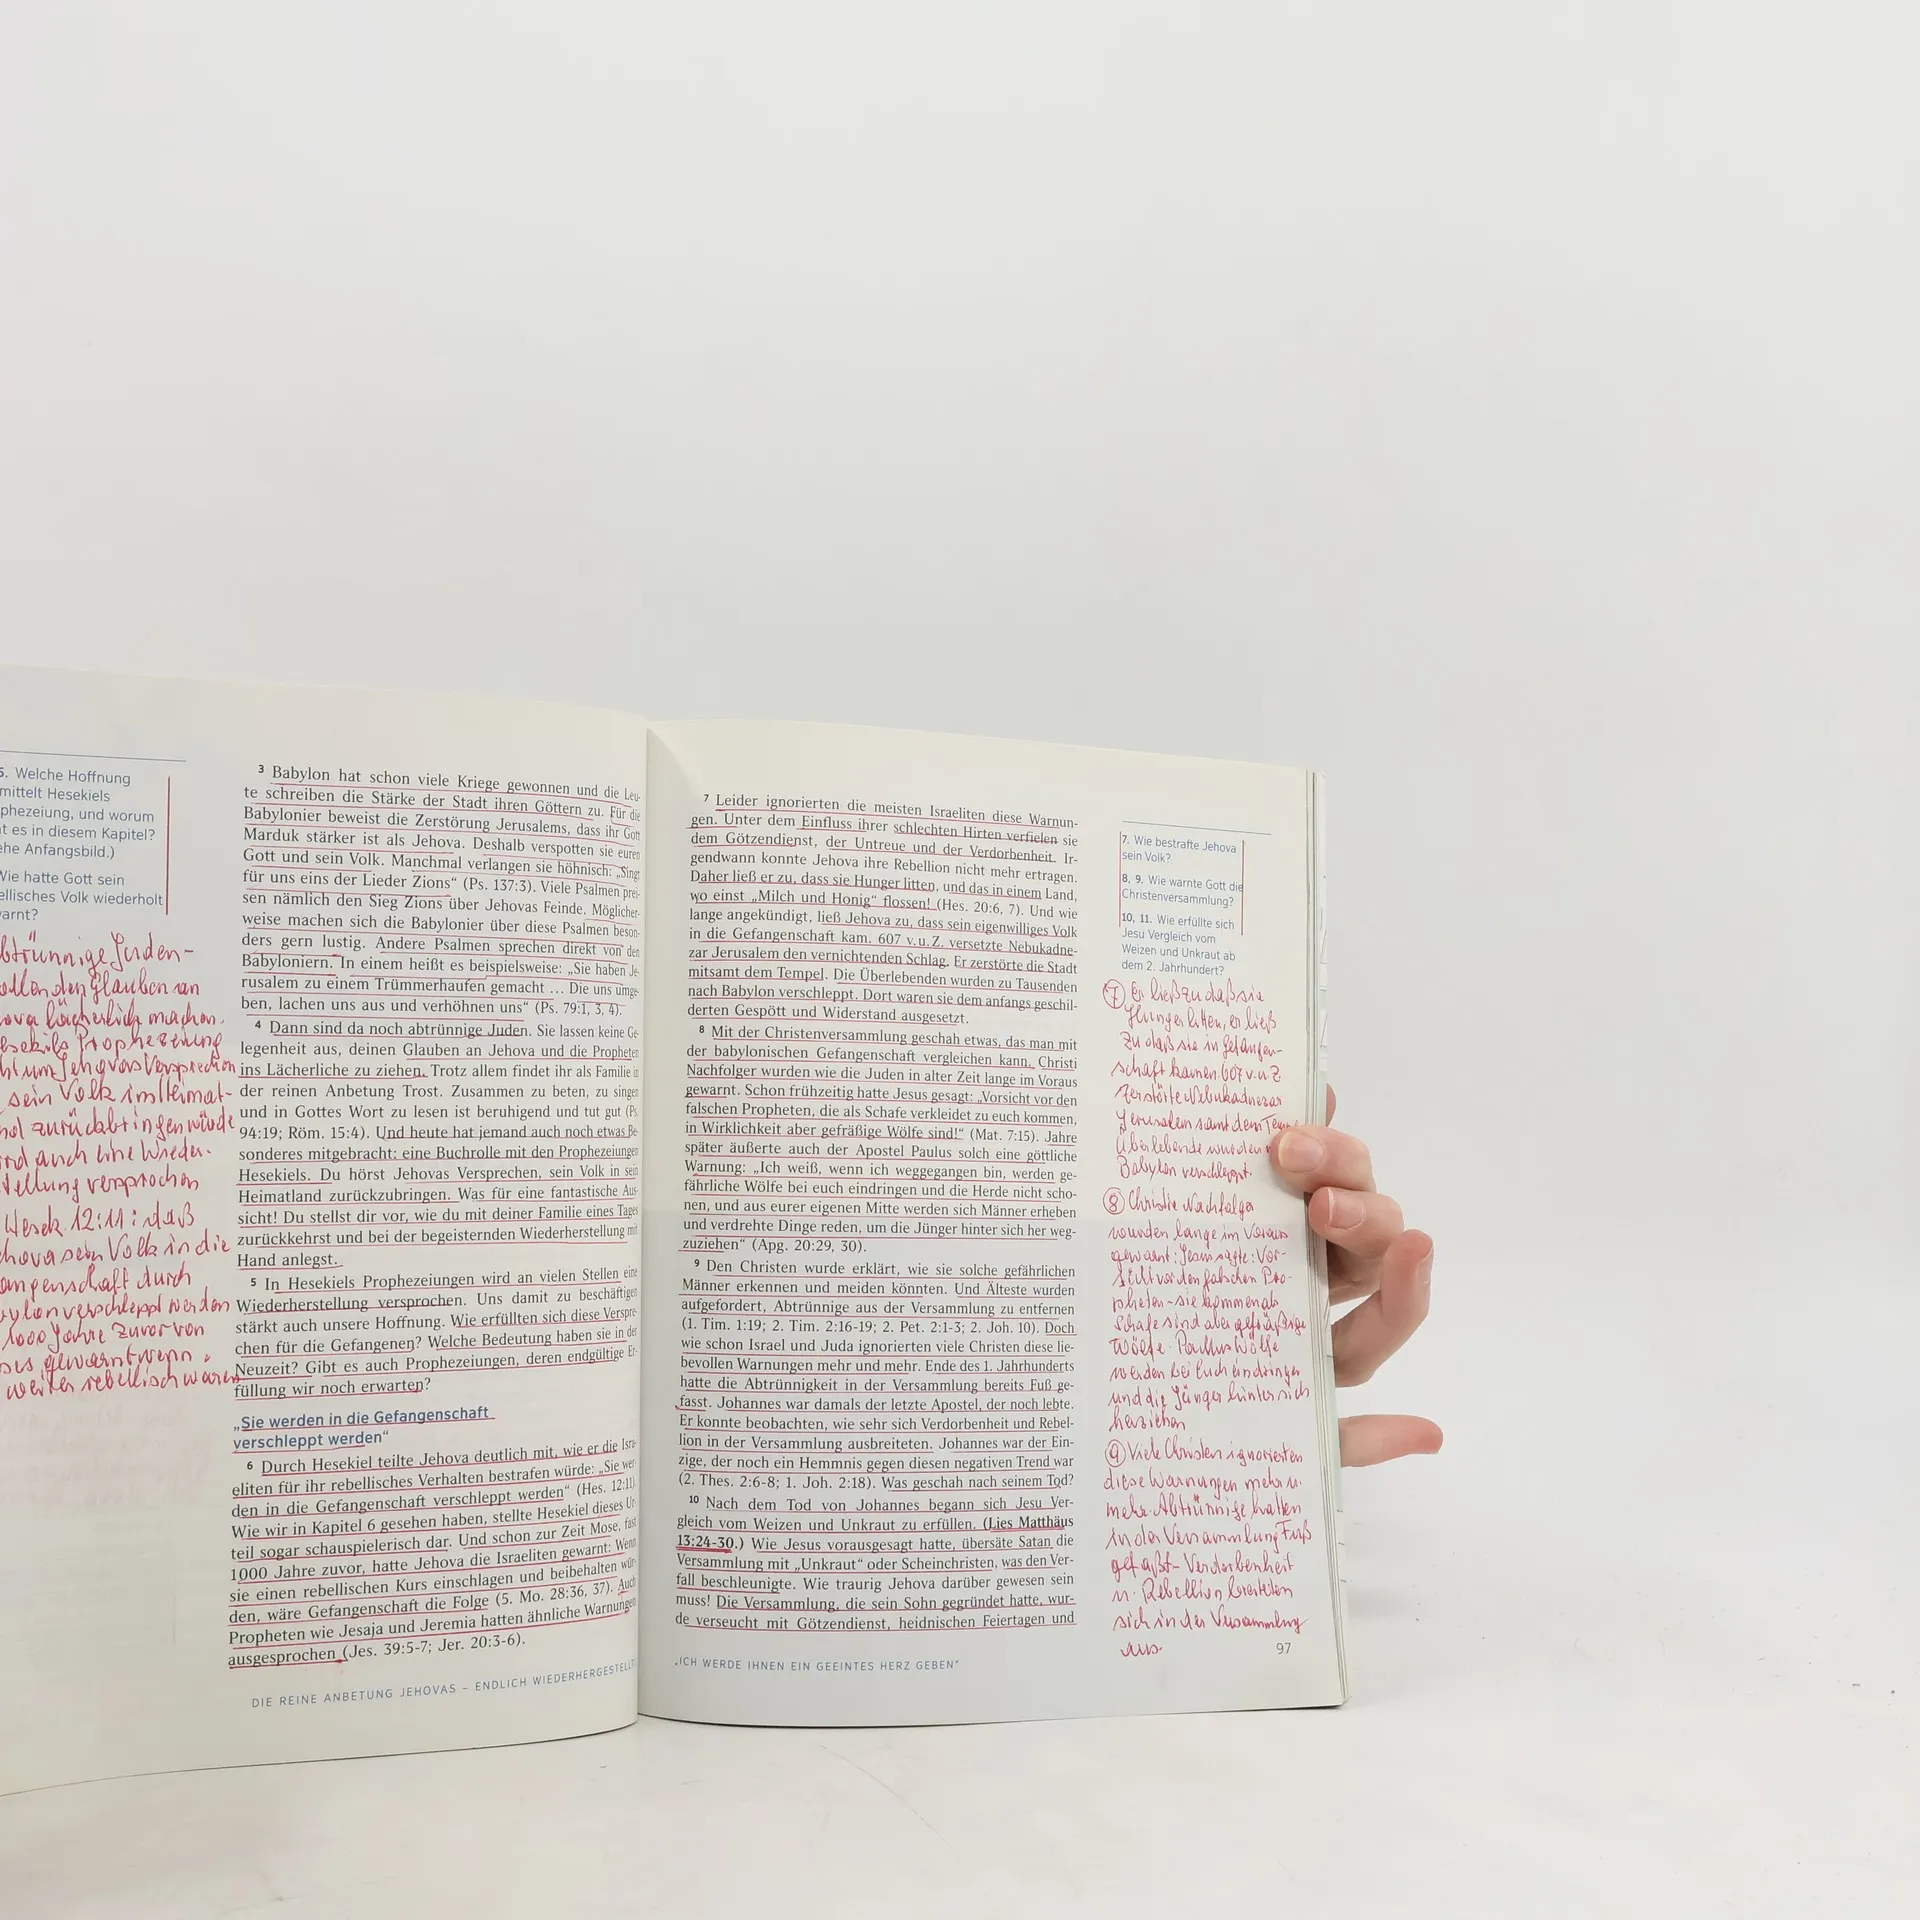 5. Welche Hoffnung
mittelt Hesekiels
phezeiung, und worum
t es in diesem Kapitel?
ehe Anfangsbild.)
Wie hatte Gott sein
ellisches Volk wiederholt
arnt?
btrünnige Juden-
den Glauben an
ova lächerlich machen.
esekils Prophezeiung
um Jehovas Versprechen
sein Volk ins Heimat-
nd zurückbringen würde
und auch eine Wieder-
tellung versprochen
Hesek. 12:11: daß
hova sein Volk in die
angenschaft durch
ylon verschleppt werden
1000 Jahre zuvor von
gewarnt wenn
weiter rebellisch waren
3 Babylon hat schon viele Kriege gewonnen und die Leu-
te schreiben die Stärke der Stadt ihren Göttern zu. Für die
Babylonier beweist die Zerstörung Jerusalems, dass ihr Gott
Marduk stärker ist als Jehova. Deshalb verspotten sie euren
Gott und sein Volk. Manchmal verlangen sie höhnisch: „Singt
für uns eins der Lieder Zions“ (Ps. 137:3). Viele Psalmen prei-
sen nämlich den Sieg Zions über Jehovas Feinde. Möglicher-
weise machen sich die Babylonier über diese Psalmen beson-
ders gern lustig. Andere Psalmen sprechen direkt von den
Babyloniern. In einem heißt es beispielsweise: „Sie haben Je-
rusalem zu einem Trümmerhaufen gemacht ... Die uns umge-
ben, lachen uns aus und verhöhnen uns“ (Ps. 79:1, 3, 4).
4 Dann sind da noch abtrünnige Juden. Sie lassen keine Ge-
legenheit aus, deinen Glauben an Jehova und die Propheten
ins Lächerliche zu ziehen. Trotz allem findet ihr als Familie in
der reinen Anbetung Trost. Zusammen zu beten, zu singen
und in Gottes Wort zu lesen ist beruhigend und tut gut (Ps.
94:19; Röm. 15:4). Und heute hat jemand auch noch etwas Be-
sonderes mitgebracht: eine Buchrolle mit den Prophezeiungen
Hesekiels. Du hörst Jehovas Versprechen, sein Volk in sein
Heimatland zurückzubringen. Was für eine fantastische Aus-
sicht! Du stellst dir vor, wie du mit deiner Familie eines Tages
zurückkehrst und bei der begeisternden Wiederherstellung mit
Hand anlegst.
5 In Hesekiels Prophezeiungen wird an vielen Stellen eine
Wiederherstellung versprochen. Uns damit zu beschäftigen
stärkt auch unsere Hoffnung. Wie erfüllten sich diese Verspre-
chen für die Gefangenen? Welche Bedeutung haben sie in der
Neuzeit? Gibt es auch Prophezeiungen, deren endgültige Er-
füllung wir noch erwarten?
„Sie werden in die Gefangenschaft
verschleppt werden“
6 Durch Hesekiel teilte Jehova deutlich mit, wie er die Isra-
eliten für ihr rebellisches Verhalten bestrafen würde: „Sie wer-
den in die Gefangenschaft verschleppt werden“ (Hes. 12:11).
Wie wir in Kapitel 6 gesehen haben, stellte Hesekiel dieses Ur-
teil sogar schauspielerisch dar. Und schon zur Zeit Mose, fast
1000 Jahre zuvor, hatte Jehova die Israeliten gewarnt: Wenn
sie einen rebellischen Kurs einschlagen und beibehalten wür-
den, wäre Gefangenschaft die Folge (5. Mo. 28:36, 37). Auch
Propheten wie Jesaja und Jeremia hatten ähnliche Warnungen
ausgesprochen (Jes. 39:5-7; Jer. 20:3-6).
DIE REINE ANBETUNG JEHOVAS – ENDLICH WIEDERHERGESTELLT!
7 Leider ignorierten die meisten Israeliten diese Warnun-
gen. Unter dem Einfluss ihrer schlechten Hirten verfielen sie
dem Götzendienst, der Untreue und der Verdorbenheit. Ir-
gendwann konnte Jehova ihre Rebellion nicht mehr ertragen.
Daher ließ er zu, dass sie Hunger litten, und das in einem Land,
wo einst „Milch und Honig“ flossen! (Hes. 20:6, 7). Und wie
lange angekündigt, ließ Jehova zu, dass sein eigenwilliges Volk
in die Gefangenschaft kam. 607 v. u. Z. versetzte Nebukadne-
zar Jerusalem den vernichtenden Schlag. Er zerstörte die Stadt
mitsamt dem Tempel. Die Überlebenden wurden zu Tausenden
nach Babylon verschleppt. Dort waren sie dem anfangs geschil-
derten Gespött und Widerstand ausgesetzt.
8 Mit der Christenversammlung geschah etwas, das man mit
der babylonischen Gefangenschaft vergleichen kann. Christi
Nachfolger wurden wie die Juden in alter Zeit lange im Voraus
gewarnt. Schon frühzeitig hatte Jesus gesagt: „Vorsicht vor den
falschen Propheten, die als Schafe verkleidet zu euch kommen,
in Wirklichkeit aber gefräßige Wölfe sind!“ (Mat. 7:15). Jahre
später äußerte auch der Apostel Paulus solch eine göttliche
Warnung: „Ich weiß, wenn ich weggegangen bin, werden ge-
fährliche Wölfe bei euch eindringen und die Herde nicht scho-
nen, und aus eurer eigenen Mitte werden sich Männer erheben
und verdrehte Dinge reden, um die Jünger hinter sich her weg-
zuziehen“ (Apg. 20:29, 30).
9 Den Christen wurde erklärt, wie sie solche gefährlichen
Männer erkennen und meiden könnten. Und Älteste wurden
aufgefordert, Abtrünnige aus der Versammlung zu entfernen
(1. Tim. 1:19; 2. Tim. 2:16-19; 2. Pet. 2:1-3; 2. Joh. 10). Doch
wie schon Israel und Juda ignorierten viele Christen diese lie-
bevollen Warnungen mehr und mehr. Ende des 1. Jahrhunderts
hatte die Abtrünnigkeit in der Versammlung bereits Fuß ge-
fasst. Johannes war damals der letzte Apostel, der noch lebte.
Er konnte beobachten, wie sehr sich Verdorbenheit und Rebel-
lion in der Versammlung ausbreiteten. Johannes war der Ein-
zige, der noch ein Hemmnis gegen diesen negativen Trend war
(2. Thes. 2:6-8; 1. Joh. 2:18). Was geschah nach seinem Tod?
10 Nach dem Tod von Johannes begann sich Jesu Ver-
gleich vom Weizen und Unkraut zu erfüllen. (Lies Matthäus
13:24-30.) Wie Jesus vorausgesagt hatte, übersäte Satan die
Versammlung mit „Unkraut“ oder Scheinchristen, was den Ver-
fall beschleunigte. Wie traurig Jehova darüber gewesen sein
muss! Die Versammlung, die sein Sohn gegründet hatte, wur-
de verseucht mit Götzendienst, heidnischen Feiertagen und
„ICH WERDE IHNEN EIN GEEINTES HERZ GEBEN“
7. Wie bestrafte Jehova
sein Volk?
8, 9. Wie warnte Gott die
Christenversammlung?
10, 11. Wie erfüllte sich
Jesu Vergleich vom
Weizen und Unkraut ab
dem 2. Jahrhundert?
7 Er ließ zu daß sie
Hunger litten, er ließ
zu daß sie in Gefangen-
schaft kamen 607 v.u.Z
zerstörte Nebukadnezar
Jerusalem samt dem Tem
Überlebende wurden
Babylon verschleppt.
8 Christie Nachfolger
wurden lange im Voraus
gewarnt: Jesus sagte: Vor-
sicht vor den falschen Pro-
pheten - sie kommen als
Schafe sind aber gefräßige
Wölfe. Paulus Wölfe
werden bei Euch eindringen
und die Jünger hinter sich
herziehen
9 Viele Christen ignorierten
diese Warnungen mehr u.
mehr. Abtrünnige hatten
in der Versammlung Fuß
gefaßt - Verdorbenheit
u. Rebellion breiteten
sich in der Versammlung
aus.
97